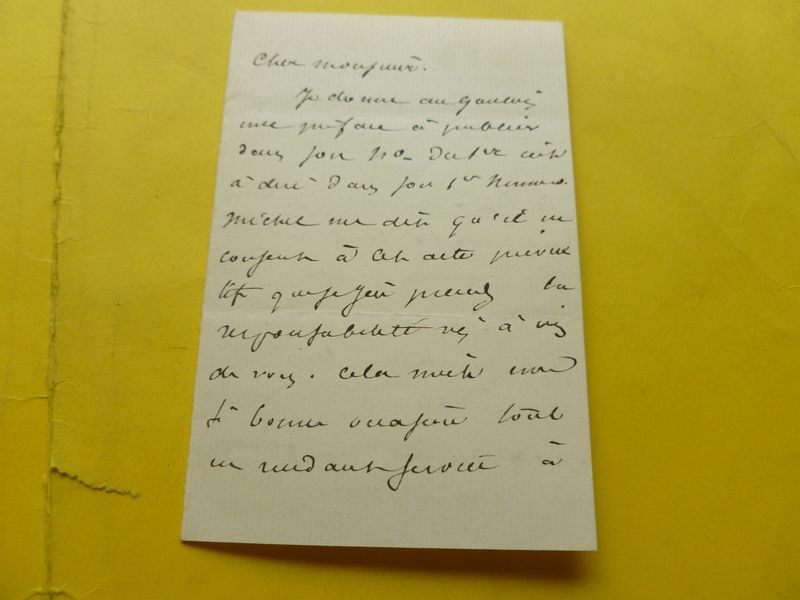 Cher monsieur.
Je donne au Gaulois
une préface à publier
dans son No. du 1er
à dire dans son 1er Numero.
Michel me dit qu'il ne
consent à cet acte
que si j'en prends la
responsabilité vis à vis
de vous. Cela
si bonne occasion tout
en rendant service à